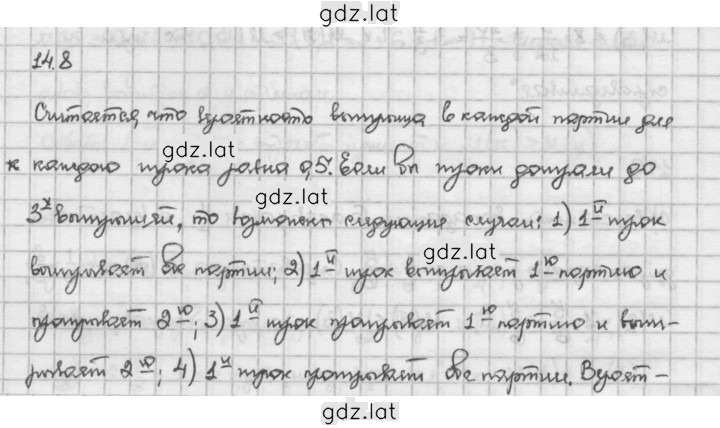 gdz.lat
14.8
Считается, что вероятность выигрыша в каждой партии для
gdz.lat
к каждого игрока равна 0,5. Если бы игроки доиграли до
3х выигрышей, то возможны следующие случаи: 1) 1й игрок
gdz.lat
выигрывает обе партии; 2) 1й игрок выигрывает 1ю партию и
проигрывает 2ю; 3) 1й игрок проигрывает 1ю партию и выиг-
рывает 2ю; 4) 1й игрок проигрывает обе партии. Вероят-
gdz.lat